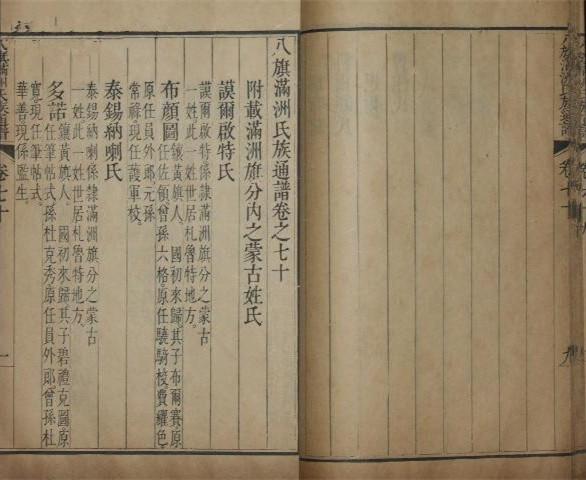 八旗滿洲氏族通譜卷之七十
附載滿洲旗分內之蒙古姓氏
謨爾啟特氏
謨爾啟特係隸滿洲旗分之蒙古
一姓此一姓世居札魯特地方
布顏圖
鑲黃旗人國初來歸其子布爾賽原
任佐領曾孫六格原任驍騎校費耀色
原任員外郎元孫
常祿現任護軍校
泰錫納喇氏
泰錫納喇係隸滿洲旗分之蒙古
一姓此一姓世居札魯特地方
多諾
鑲黃旗人國初來歸其子碧禮克圖原
任筆帖式孫杜克秀原任員外郎曾孫杜
寬現任筆帖式
華善現係監生
八旗滿洲氏族通譜
卷七十
一
八旗滿洲氏族通譜
卷七十